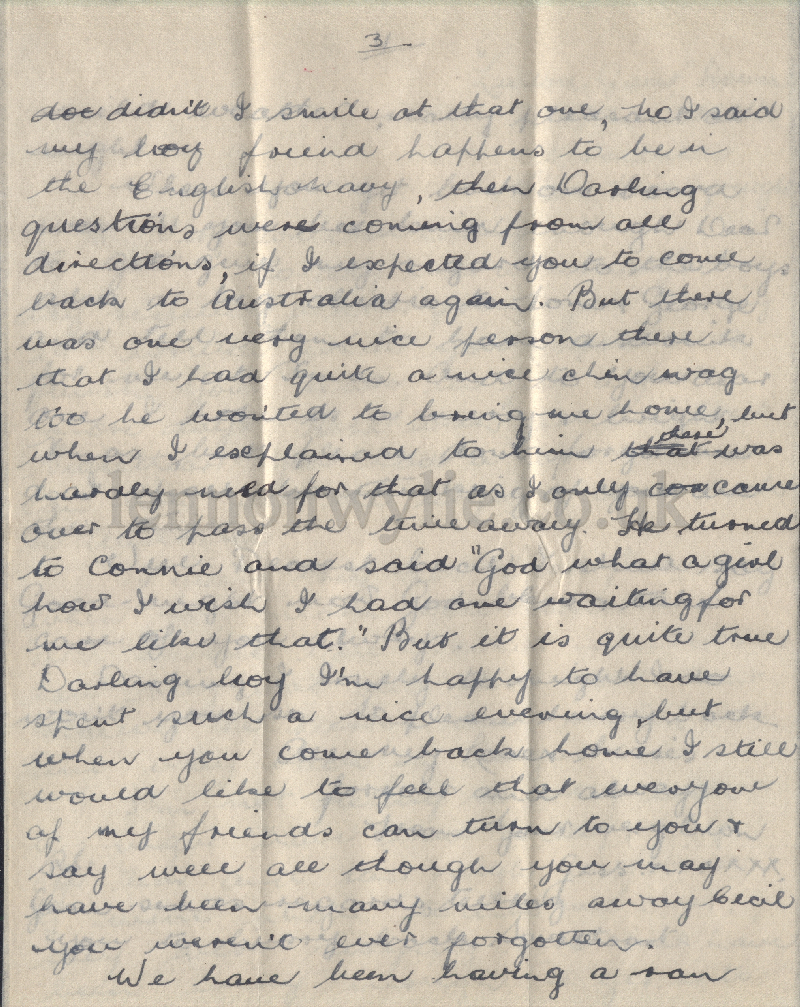 3
doe didn't I smile at that one, no I said
my boy friend happens to be in
the English navy, then Darling
questions were coming from all
directions, if I expected you to come
back to Australia again. But there
was one very nice person there
that I had quite a nice chin wag
too he wonted to bring me home, but
when I explained to him that there was
hardly need for that as I only cos came
over to pass the time away. He turned
to Connie and said "God what a girl
how I wish I had one waiting for
me like that." But it is quite true
Darling boy I'm happy to have
spent such a nice evening, but
when you come back home I still
would like to feel that everyone
of my friends can turn to you &
say well all though you may
have been many miles away Cecil
you weren't ever forgotten.
We have been having a ran
lennonwylie.co.uk